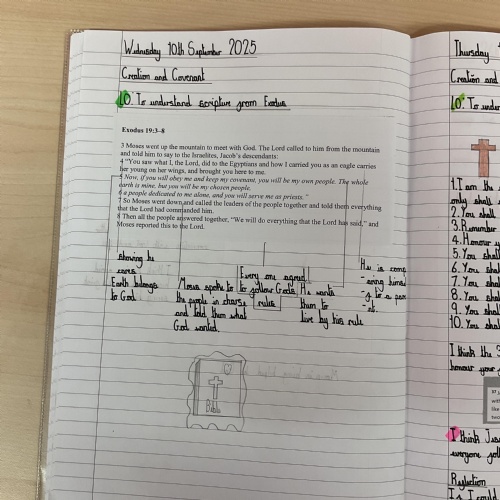 Wednesday 10th September 2025
Creation and Covenant
LO: To understand scripture from Exodus
Exodus 19:3-8
3 Moses went up the mountain to meet with God. The Lord called to him from the mountain
and told him to say to the Israelites, Jacob's descendants:
4 "You saw what I, the Lord, did to the Egyptians and how I carried you as an eagle carries
her young on her wings, and brought you here to me.
5 Now, if you will obey me and keep my covenant, you will be my own people. The whole
earth is mine, but you will be my chosen people.
6 a people dedicated to me alone, and you will serve me as priests."
7 So Moses went down and called the leaders of the people together and told them everything
that the Lord had commanded him.
8 Then all the people answered together, "We will do everything that the Lord has said," and
Moses reported this to the Lord.
showing he
cares
Earth belongs
to God
Moses spoke to
the people in charge
and told them what
God wanted
Every one agreed
to follow Gods
rules
He wants
them to
live by his rule
He is comp
-aring himse
-g to a par
-nt.
Thursday
Creation and
LO: To under
1. I am the
only shall
2. You shal
3. Remember
4. Honour
5. You shal
6. You shal
7. You shal
8. You shal
9. You shal
10. You shal
I think the
honour your
I think Jes
everyone foll
Reflection